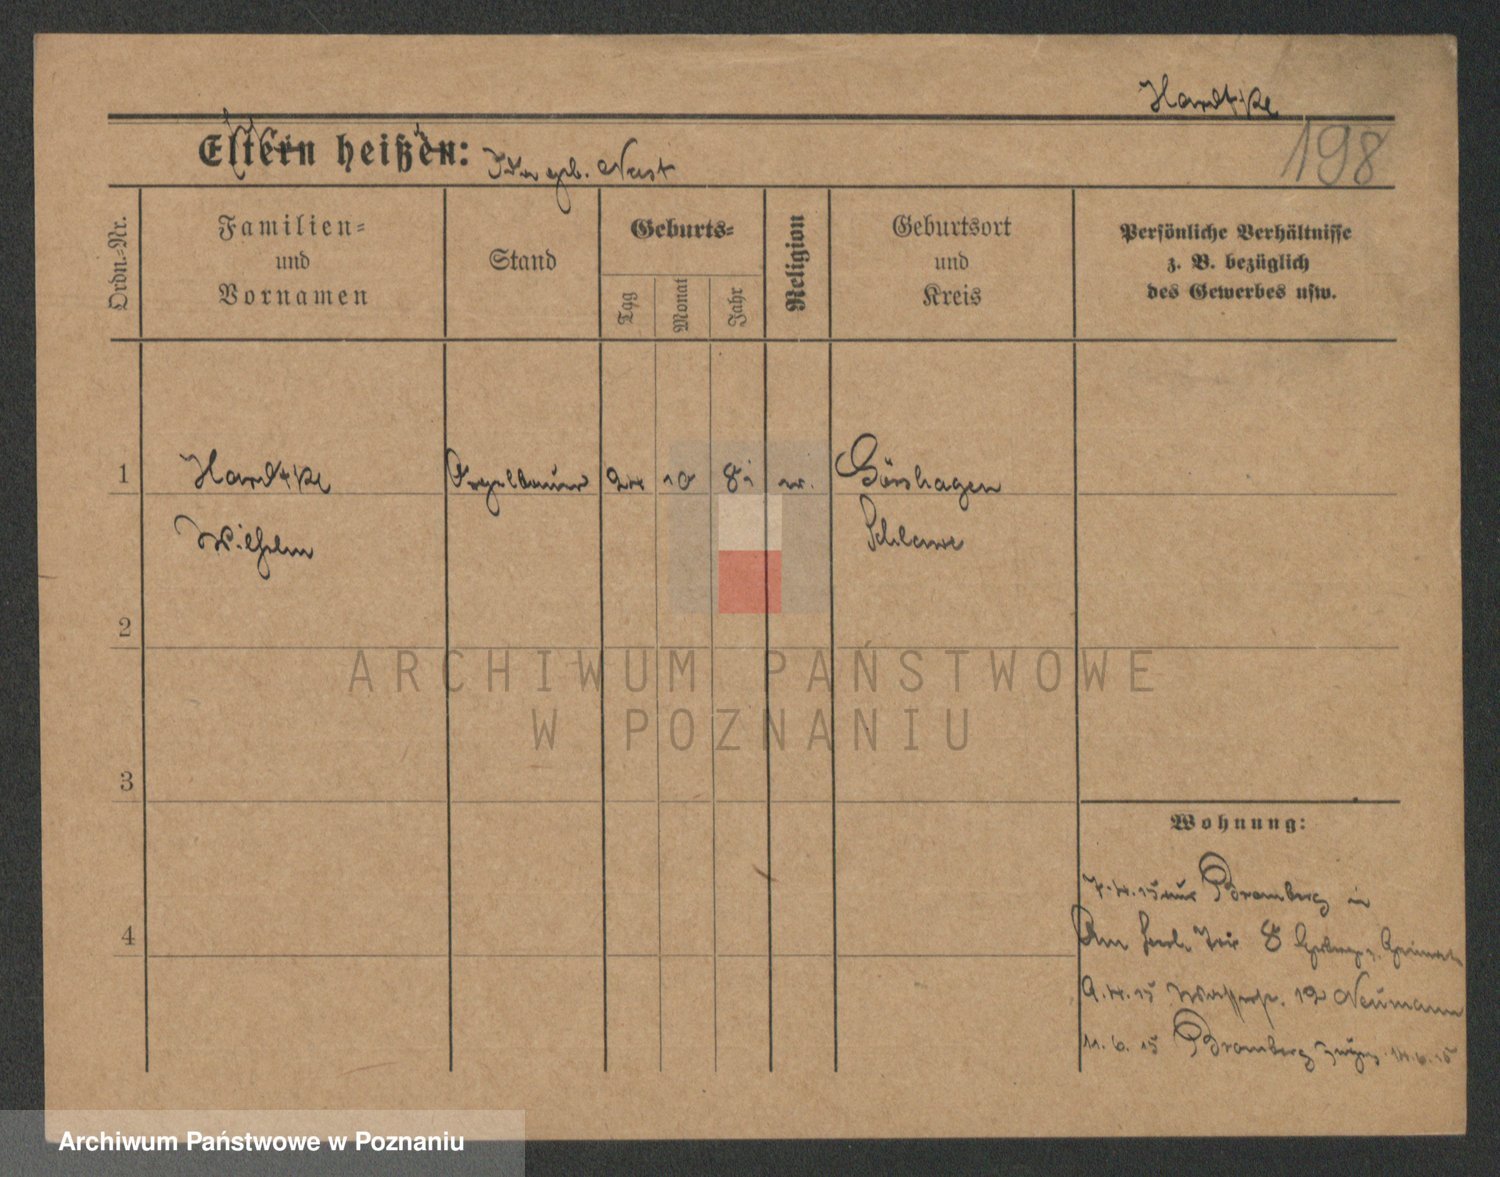 Hardtke
198
Eltern heißen: Ida geb. Neist
Ordn.-Nr.
Familien-
und
Vornamen
Stand
Geburts-
Tag
Monat
Jahr
Religion
Geburtsort
und
Kreis
Persönliche Verhältnisse
z. B. bezüglich
des Gewerbes usw.
1 Hardtke Orgelbauer 10 81 Görshagen
Wilhelm Schlawe
2
3
4
Wohnung:
7.4.15 aus Bromberg in
Am 8
9.4.15 12 Neumann
11.6.15 Bromberg 14.6.15
ARCHIWUM PAŃSTWOWE
W POZNANIU
Archiwum Państwowe w Poznaniu